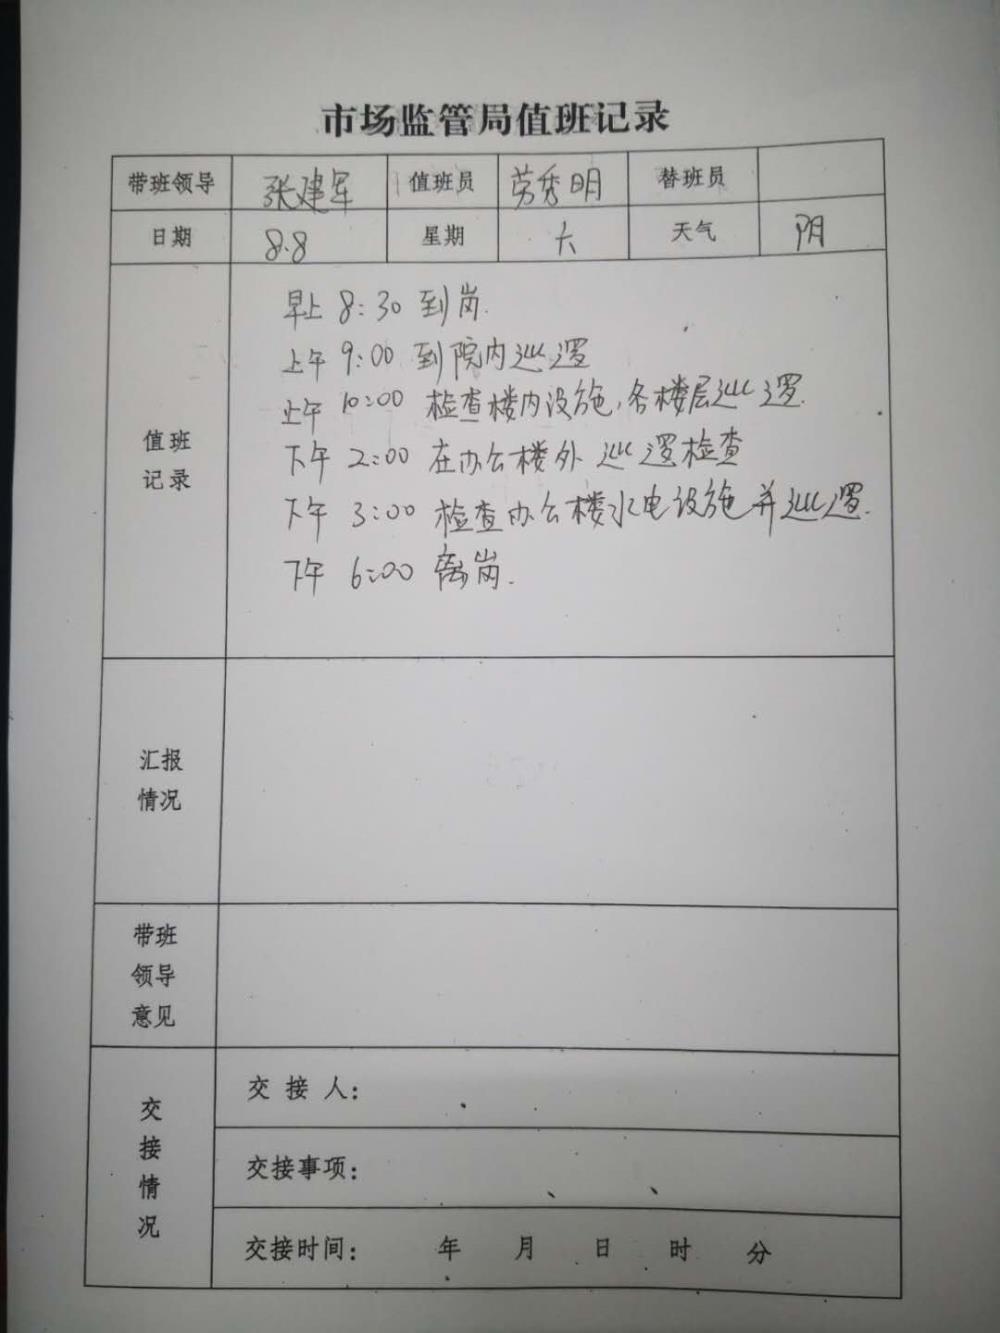 市场监管局值班记录
带班领导 张建军 值班员 劳秀明 替班员
日期 8.8 星期 六 天气 阴
早上 8:30 到岗.
上午 9:00 到院内巡逻
上午 10:00 检查楼内设施,各楼层巡逻.
下午 2:00 在办公楼外巡逻检查
下午 3:00 检查办公楼水电设施并巡逻.
下午 6:00 离岗.
值班
记录
汇报
情况
带班
领导
意见
交
接
情
况
交 接 人:
交接事项:
交接时间: 年 月 日 时 分